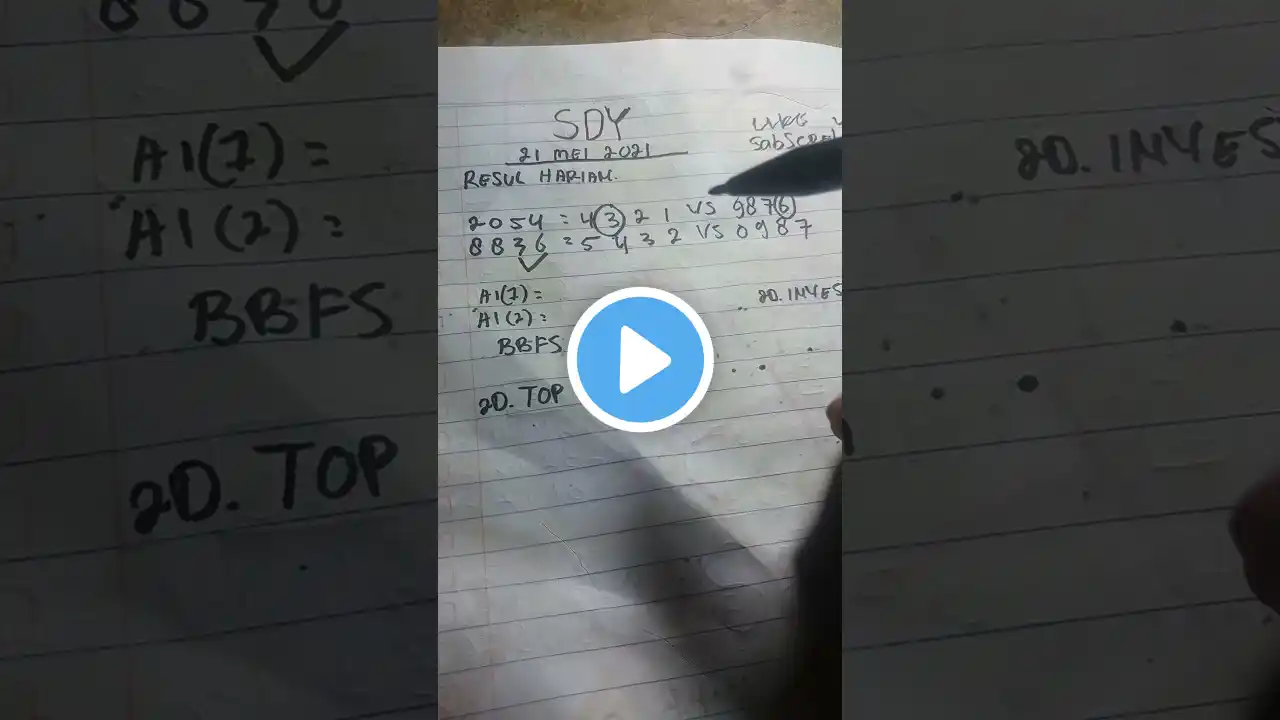 SDY
21 MEI 2021
RESUL HARIAN.
2054 = 4 3 2 1 VS 987 6
8836 = 5 4 3 2 VS 0987
AI(1) =
AI(2) =
BBFS
2D. INVES
2D. TOP